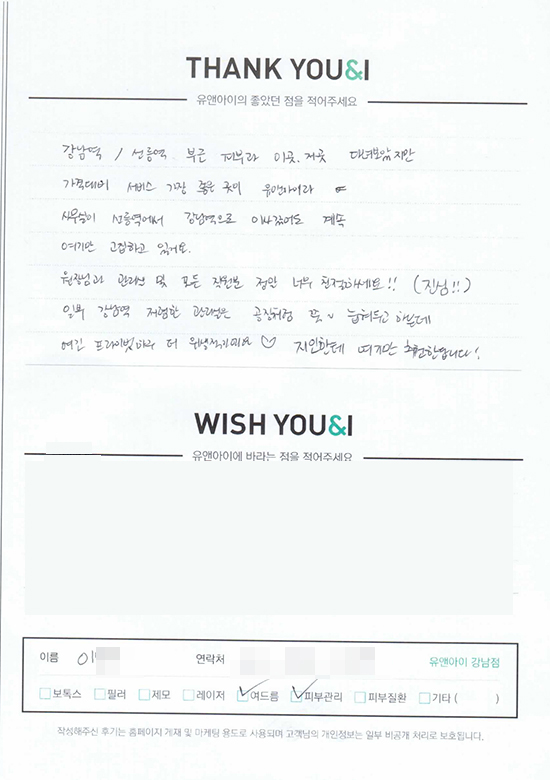 THANK YOU&I
유앤아이의 좋았던 점을 적어주세요
강남역 / 선릉역 부근 피부과 이곳, 저곳 다녀보았지만
가격대비 서비스 가장 좋은 곳이 유앤아이라
사무실이 선릉역에서 강남역으로 이사갔어도 계속
여기만 고집하고 있어요.
원장님과 관리사 및 모든 직원분 정말 너무 친절하세요!! (진심!!)
일부 강남역 저렴한 관리실은 공장처럼 쭉~ 눕혀두고 하는데
여긴 프라이빗하고 더 위생적이에요 ♡ 지인한테 여기만 추천한답니다!
WISH YOU&I
유앤아이에 바라는 점을 적어주세요
이름 이 연락처 유앤아이 강남점
보톡스 필러 제모 레이저 여드름 피부관리 피부질환 기타 ( )
작성해주신 후기는 홈페이지 게재 및 마케팅 용도로 사용되며 고객님의 개인정보는 일부 비공개 처리로 보호됩니다.